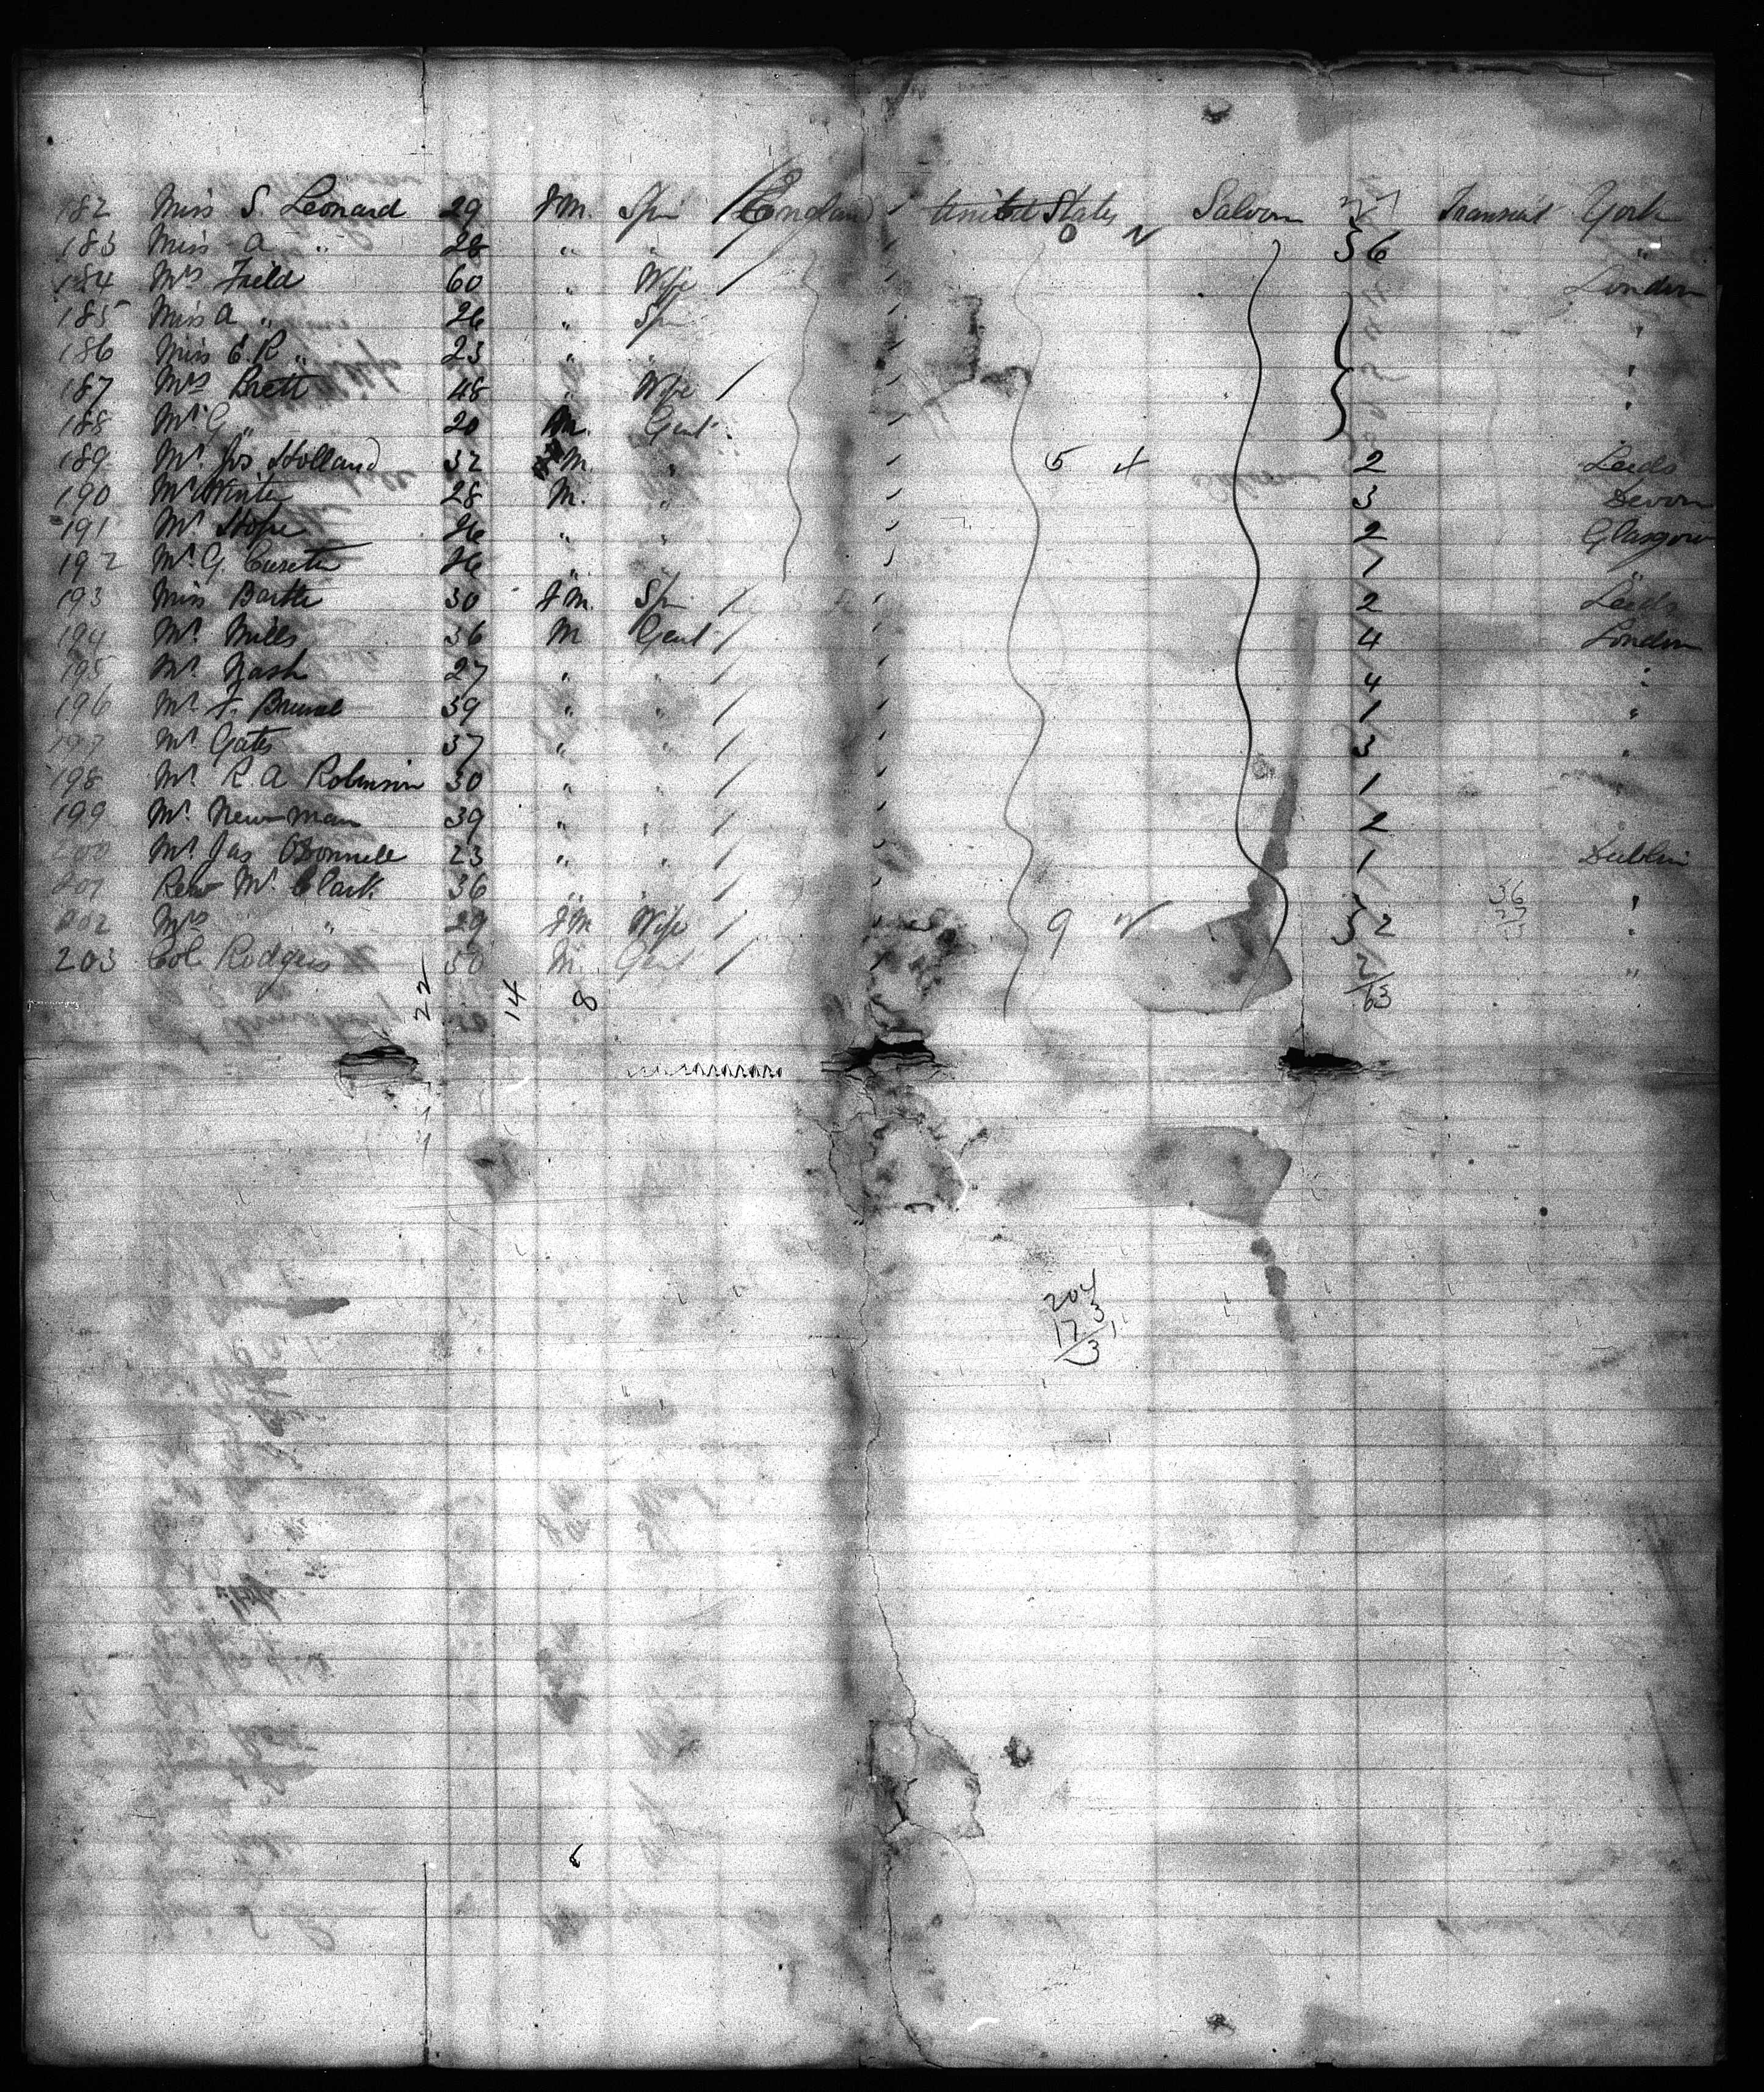 182 Miss S. Leonard 29 fM. Spi England United States Saloon Transient York
0
183 Miss A " 28 " " 56 "
184 Mrs Field 60 " Wife London
185 Miss A " 26 " Spi "
186 Miss E. R " 23 " " "
187 Mrs Brett 48 " Wife "
188 Mr G " 20 M. Gent "
189 Mr. Jos. Holland 32 M. " 5 4 2 Leeds
190 Mr Winter 28 M. " 3 Devon
191 Mr Hope " " 2 Glasgow
192 Mr. G. " 1 "
193 Miss 30 fM. Spi 2 Leeds
194 Mr. Mills 36 M Gent 4 London
195 Mr. Nash 27 " " 4 "
196 Mr. 39 " " 1 "
197 Mr. Gates 37 " " 3 "
198 Mr. R. A Robinson 30 " " 1
199 Mr. Newman 39 " " 2
200 Mr. Jas ODonnell 23 " " 1 Dublin
201 Rev Mr. Clark 36 " "
202 Mrs " 29 fM Wife 9 52 "
203 Col Rodgers 50 M. Gent "
22 14 8 63
204